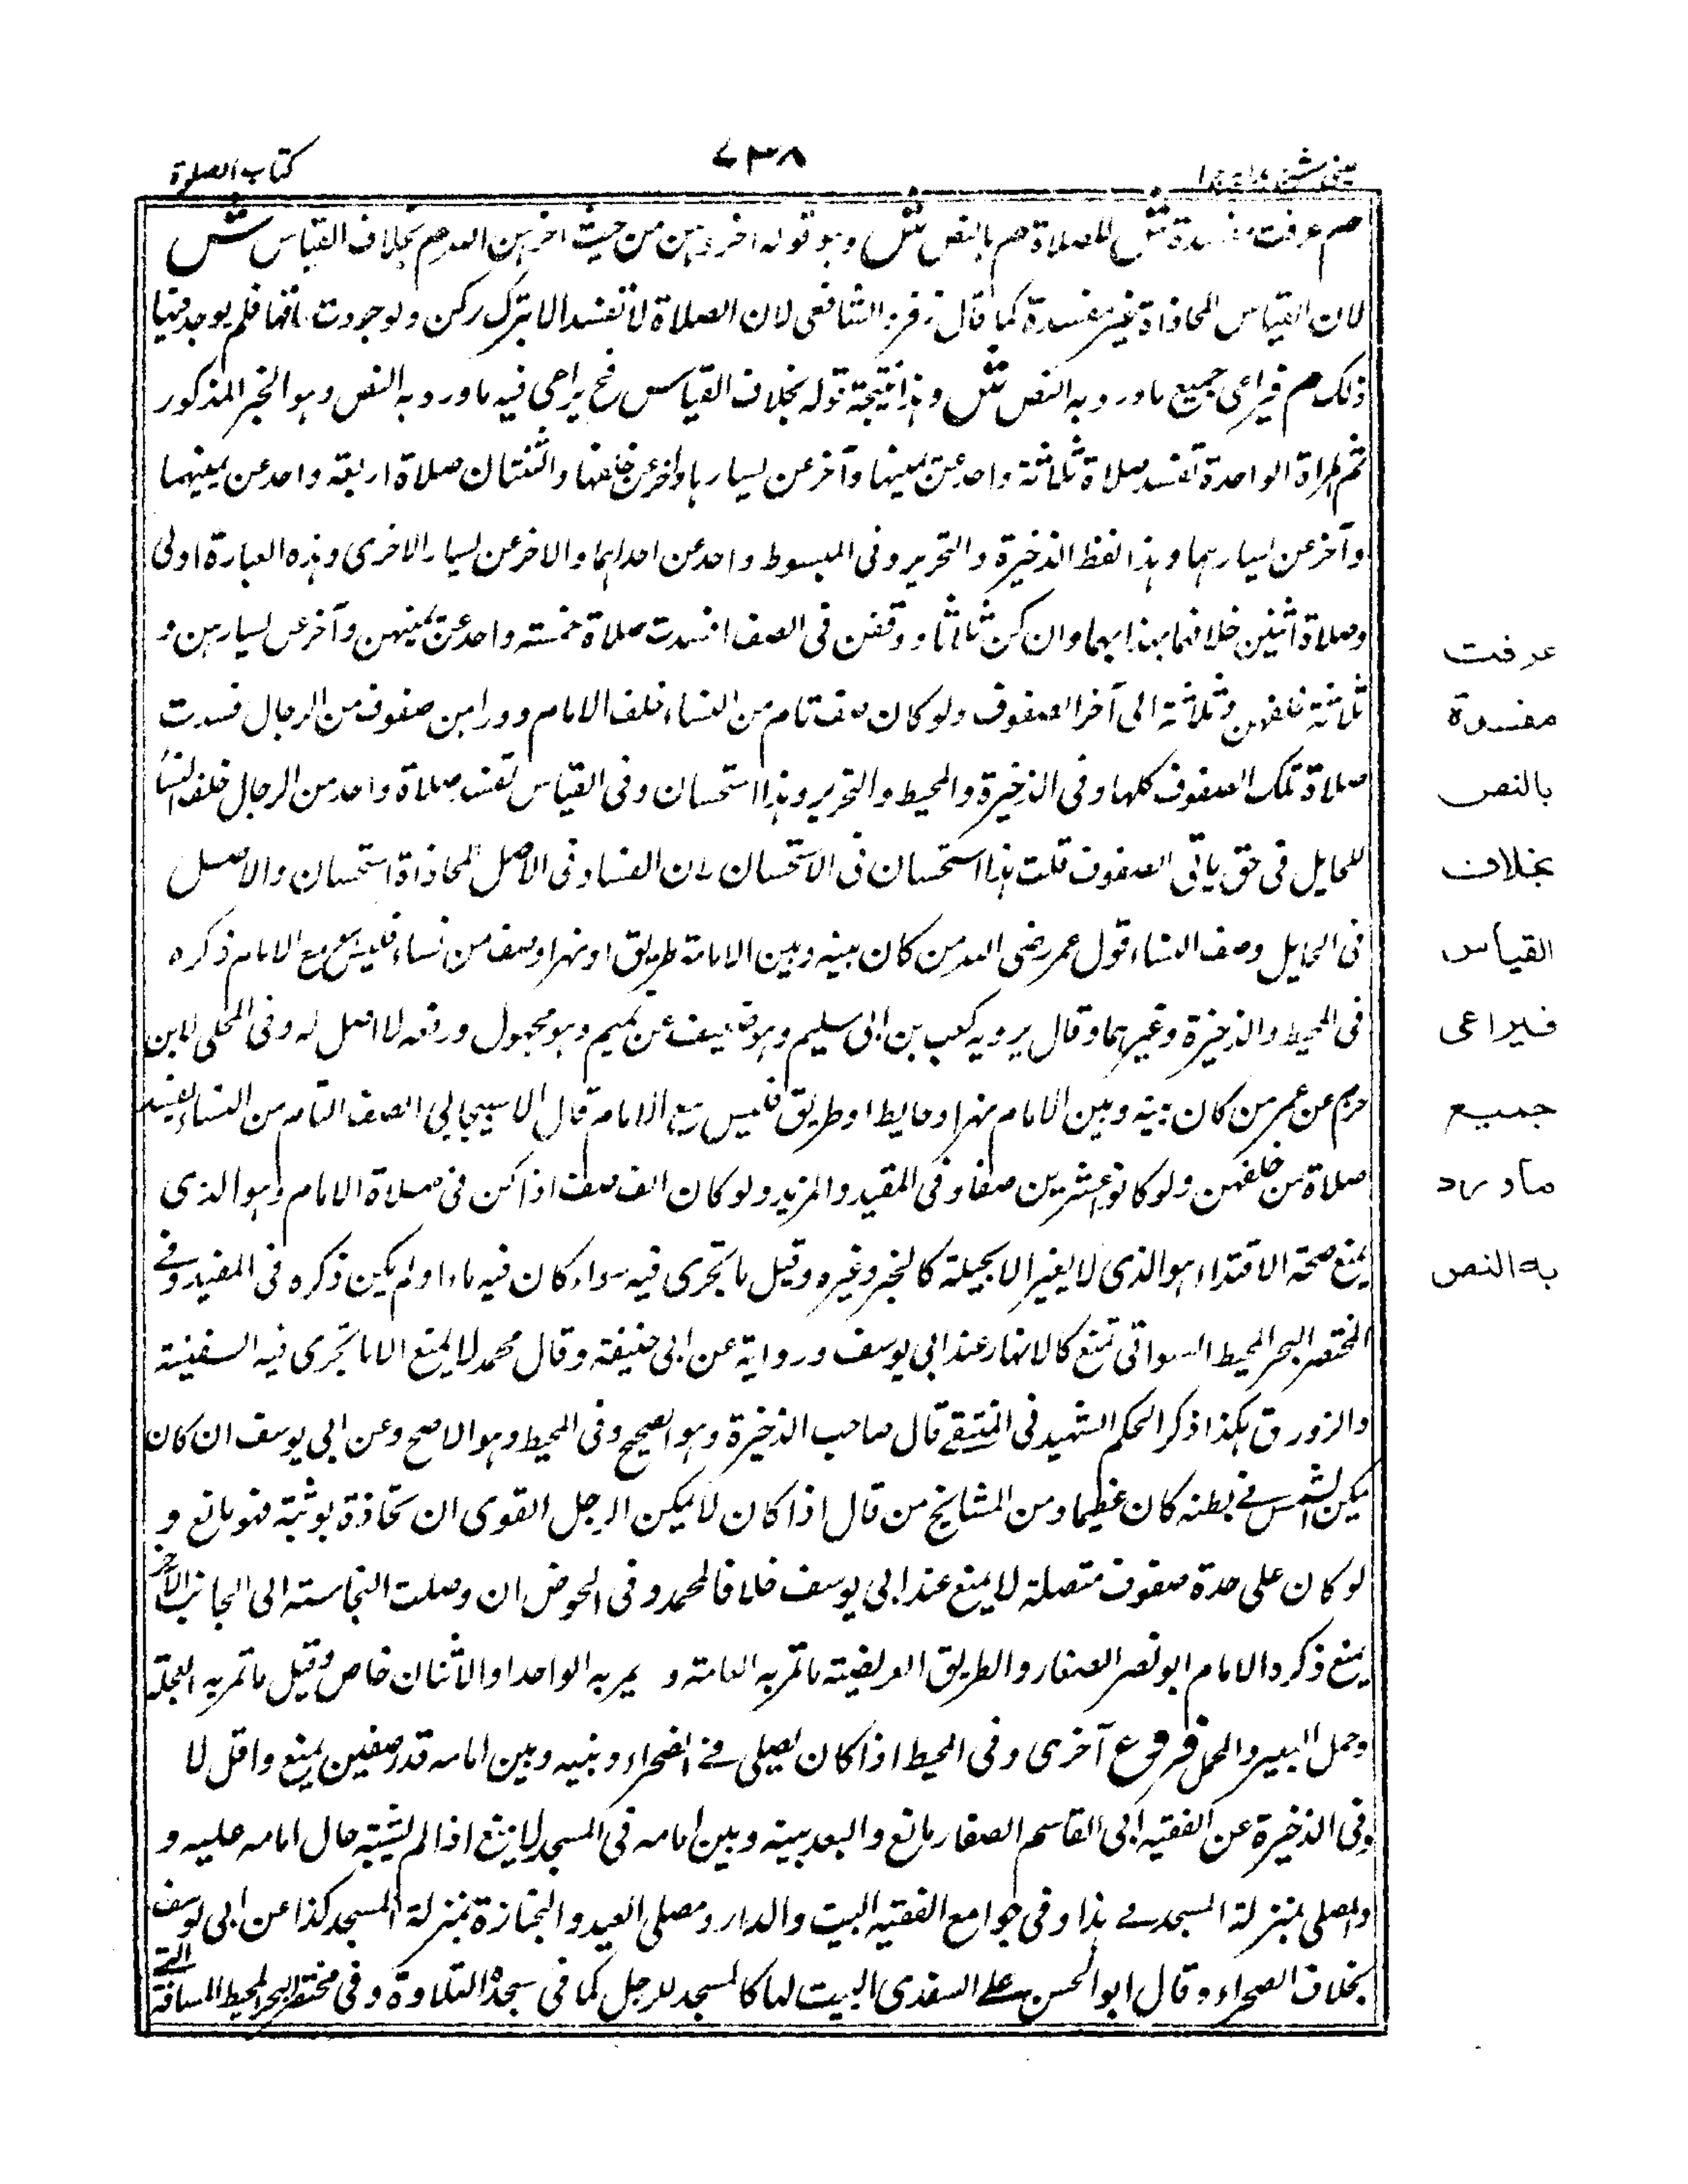 كتاب الصلوة
٧٣٨
عينى شرح هداية ج ا
م عرفت مفسدة ش للصلاة م بالنص ش وهو قوله اخروهن من حيث اخرهن الله م بخلاف القياس ش
لان القياس المحاذاة غير مفسدة كما قال زفر والشافعى لان الصلاة لا تفسد الا بترك ركن ولوجود فلم يوجد منها
ذلك م فيراعى جميع ماورد به النص ش وهذا نتيجة قوله بخلاف القياس فح يراعى فيه ماورد به النص وهو الخبر المذكور
ثم المراة الواحدة تفسد صلاة ثلاثة واحد عن يمينها وآخر عن يسارها وآخر عن خلفها والثنتان صلاة اربعة واحد عن يمينهما
وآخر عن يسارهما وهذا لفظ الذخيرة والتحرير وفى المبسوط واحد عن احداهما والاخر عن يسار الاخرى وهذه العبارة اولى
وصلاة اثنين خلفهما بحذائهما وان كن ثلاثا ووقفن فى الصف افسدت صلاة خمسة واحد عن يمينهن وآخر عن يسارهن و
ثلاثة خلفهن وثلاثة الى آخر الصفوف ولو كان صف تام من النساء خلف الامام ووراءهن صفوف من الرجال فسدت
صلاة تلك الصفوف كلها وفى الذخيرة والمحيط والتحرير وهذا استحسان وفى القياس تفسد صلاة واحد من الرجال خلف النساء
للحايل فى حق باقى الصفوف قلت هذا استحسان فى الاستحسان لان الفساد فى الاصل للمحاذاة استحسان والاصل
فى الحايل وصف النساء قول عمر رضى الله من كان بينه وبين الامامة طريق او نهر او صف من نساء فليس مع الامام ذكره
فى المحيط والذخيرة وغيرهما وقال يرويه كعب بن ابى سليم وهو ضعيف عن تميم وهو مجهول ورفعه لا اصل له وفى المحلى لابن
حزم عن عمر من كان بينه وبين الامام نهر او حايط او طريق فليس مع الامام قال الاسبيجابى الصف التام من النساء يفسد
صلاة من خلفهن ولو كانوا عشرين صفا وفى المفيد والمزيد ولو كان الف صف اذا كن فى صلاة الامام وهو الذى
يمنع صحة الاقتداء هو الذى لا يغير الا بحيلة كالخبر وغيره وقيل ما تجرى فيه سواء كان فيه ماء او لم يكن ذكره فى المفيد وفى
المختصر البحر المحيط السواقى تمنع كالانهار عند ابى يوسف ورواية عن ابى حنيفة وقال محمد لا يمنع الا ما تجرى فيه السفينة
والزورق هكذا ذكر الحكم الشهيد فى المنتقى قال صاحب الذخيرة وهو الصحيح وفى المحيط وهو الاصح وعن ابى يوسف ان كان
يكن الشمس فى بطنه كان عظيما ومن المشايخ من قال اذا كان لا يمكن الرجل القوى ان تحاذة بوثبة فهو مانع و
لو كان على حدة صفوف متصلة لا يمنع عند ابى يوسف خلافا لمحمد وفى الحوض ان وصلت النجاسة الى الجانب الآخر
يمنع ذكره الامام ابو نصر الصفار والطريق العريضة ما تمر به العامة و يمر به الواحد او الاثنان خاص وقيل ما تمر به العجلة
وحمل البعير والمحمل فروع آخرى وفى المحيط اذا كان يصلى فى الصحراء وبينه وبين امامه قدر صفين يمنع واقل لا
وفى الذخيرة عن الفقيه ابى القاسم الصفار مانع والبعد بينه وبين امامه فى المسجد لا يمنع اذا لم يشتبه حال امامه عليه و
والمصلى بمنزلة المسجد فى هذا وفى جوامع الفقيه البيت والدار ومصلى العيد والجنازة بمنزلة المسجد كذا عن ابى يوسف
بخلاف الصحراء وقال ابو الحسن على السغدى البيت لها كالمسجد للرجل كما فى سجدة التلاوة وفى مختصر البحر المحيط المسافة التى
عرفت
مفسدة
بالنص
بخلاف
القياس
فيراعى
جميع
ماورد
به النص